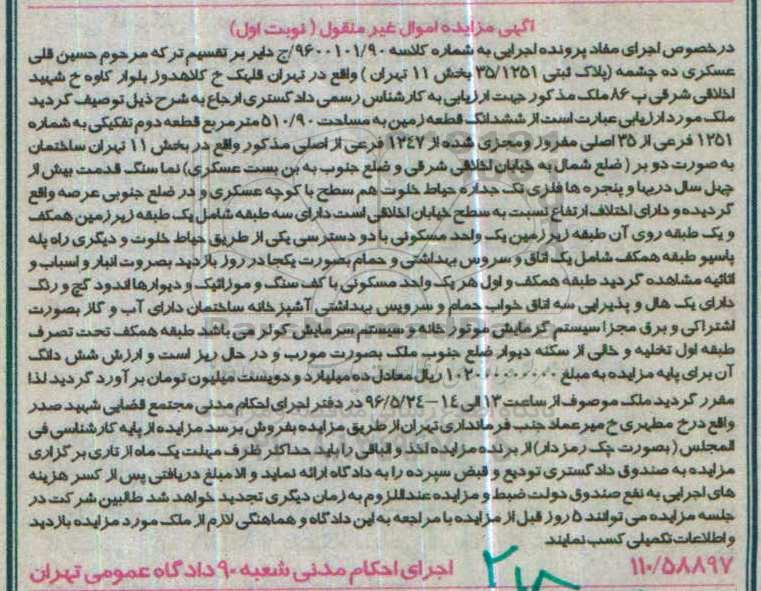 آگهی مزایده اموال غیر منقول ( نوبت اول)
درخصوص اجرای مفاد پرونده اجرایی به شماره کلاسه ۹۶۰۰۱۰۱/۹۰/ج دایر بر تقسیم ترکه مرحوم حسین قلی
عسکری ده چشمه (پلاک ثبتی ۳۵/۱۲۵۱ بخش ۱۱ تهران ) واقع در تهران قلهک خ کلاهدوز بلوار کاوه خ شهید
اخلاقی شرقی پ ۸۶ ملک مذکور جهت ارزیابی به کارشناس رسمی دادگستری ارجاع به شرح ذیل توصیف گردید
ملک مورد ارزیابی عبارت است از ششدانگ قطعه زمین به مساحت ۵۱۰/۹۰ متر مربع قطعه دوم تفکیکی به شماره
۱۲۵۱ فرعی از ۳۵ اصلی مفروز ومجزی شده از ۱۲۴۷ فرعی از اصلی مذکور واقع در بخش ۱۱ تهران ساختمان
به صورت دو بر ( ضلع شمال به خیابان اخلاقی شرقی و ضلع جنوب به بن بست عسکری) نما سنگ قدمت بیش از
چهل سال دربها و پنجره ها فلزی تک جداره حیاط خلوت هم سطح با کوچه عسکری و در ضلع جنوبی عرصه واقع
گردیده و دارای اختلاف ارتفاع نسبت به سطح خیابان اخلاقی است دارای سه طبقه شامل یک طبقه زیرزمین همکف
و یک طبقه روی آن طبقه زیرزمین یک واحد مسکونی با دو دسترسی یکی از طریق حیاط خلوت و دیگری راه پله
پاسیو طبقه همکف شامل یک اتاق و سرویس بهداشتی و حمام بصورت یکجا در روز بازدید بصروت انبار و اسباب و
اثاثیه مشاهده گردید طبقه همکف و اول هر یک واحد مسکونی با کف سنگ و موزائیک و دیوارها اندود گچ و رنگ
دارای یک هال و پذیرایی سه اتاق خواب حمام و سرویس بهداشتی آشپزخانه ساختمان دارای آب و گاز بصورت
اشتراکی و برق مجزا سیستم گرمایش موتور خانه و سیستم سرمایش کولر می باشد طبقه همکف تحت تصرف
طبقه اول تخلیه و خالی از سکنه دیوار ضلع جنوب ملک بصورت مورب و در حال ریز است و ارزش شش دانگ
آن برای پایه مزایده به مبلغ ۱۰۲۰۰۰۰۰۰۰۰۰ ریال معادل ده میلیارد و دویست میلیون تومان برآورد گردید لذا
مقرر گردید ملک موصوف از ساعت ۱۳ الی ۱۴ – ۹۶/۵/۲۴ در دفتر اجرای احکام مدنی مجتمع قضایی شهید صدر
واقع درخ مطهری خ میرعماد جنب فرمانداری تهران از طریق مزایده بفروش برسد مزایده از پایه کارشناسی فی
المجلس ( بصورت چک رمزدار) از برنده مزایده اخذ و الباقی را باید حداکثر ظرف مهلت یک ماه از تاری برگزاری
مزایده به صندوق دادگستری تودیع و قبض سپرده را به دادگاه ارائه نماید و الا مبلغ دریافتی پس از کسر هزینه
های اجرایی به نفع صندوق دولت ضبط و مزایده عنداللزوم به زمان دیگری تجدید خواهد شد طالبین شرکت در
جلسه مزایده می توانند ۵ روز قبل از مزایده با مراجعه به این دادگاه و هماهنگی لازم از ملک مورد مزایده بازدید
و اطلاعات تکمیلی کسب نمایند
۱۱۰/۵۸۸۹۷ اجرای احکام مدنی شعبه ۹۰ دادگاه عمومی تهران